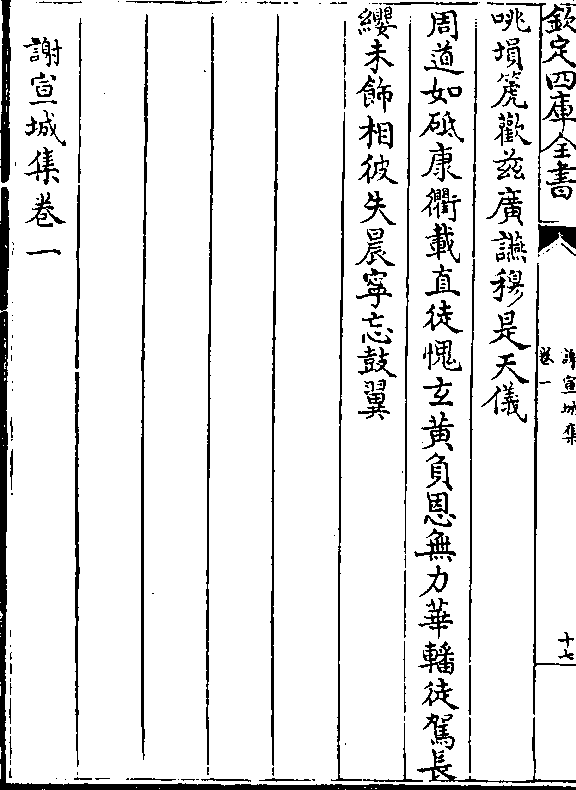 欽定四庫全書
謝宣城集
卷一
十七
咷塤箎歡兹廣讌穆是天儀
周道如砥康衢載直徒愧玄黄負恩無力華轓徒駕長
纓未飾相彼失晨寧忘鼓翼
謝宣城集卷一